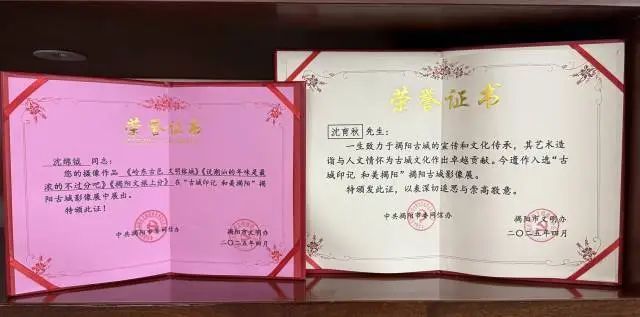 荣誉证书
沈绵钺 同志：
您的摄像作品《岭东古邑 文明榕城》《说潮汕的年味是最
浓的不过分吧》《揭阳文旅上分》在“古城印记 和美揭阳”揭
阳古城影像展中展出。
特颁此证！
中共揭阳市委网信办
揭阳市文明办
二〇二五年四月
荣誉证书
沈育秋 先生：
一生致力于揭阳古城的宣传和文化传承，其艺术造
诣与人文情怀为古城文化作出卓越贡献。今遗作入选“古
城印记 和美揭阳”揭阳古城影像展。
特颁发此证，以表深切追思与崇高敬意。
中共揭阳市委网信办
揭阳市文明办
二〇二五年四月